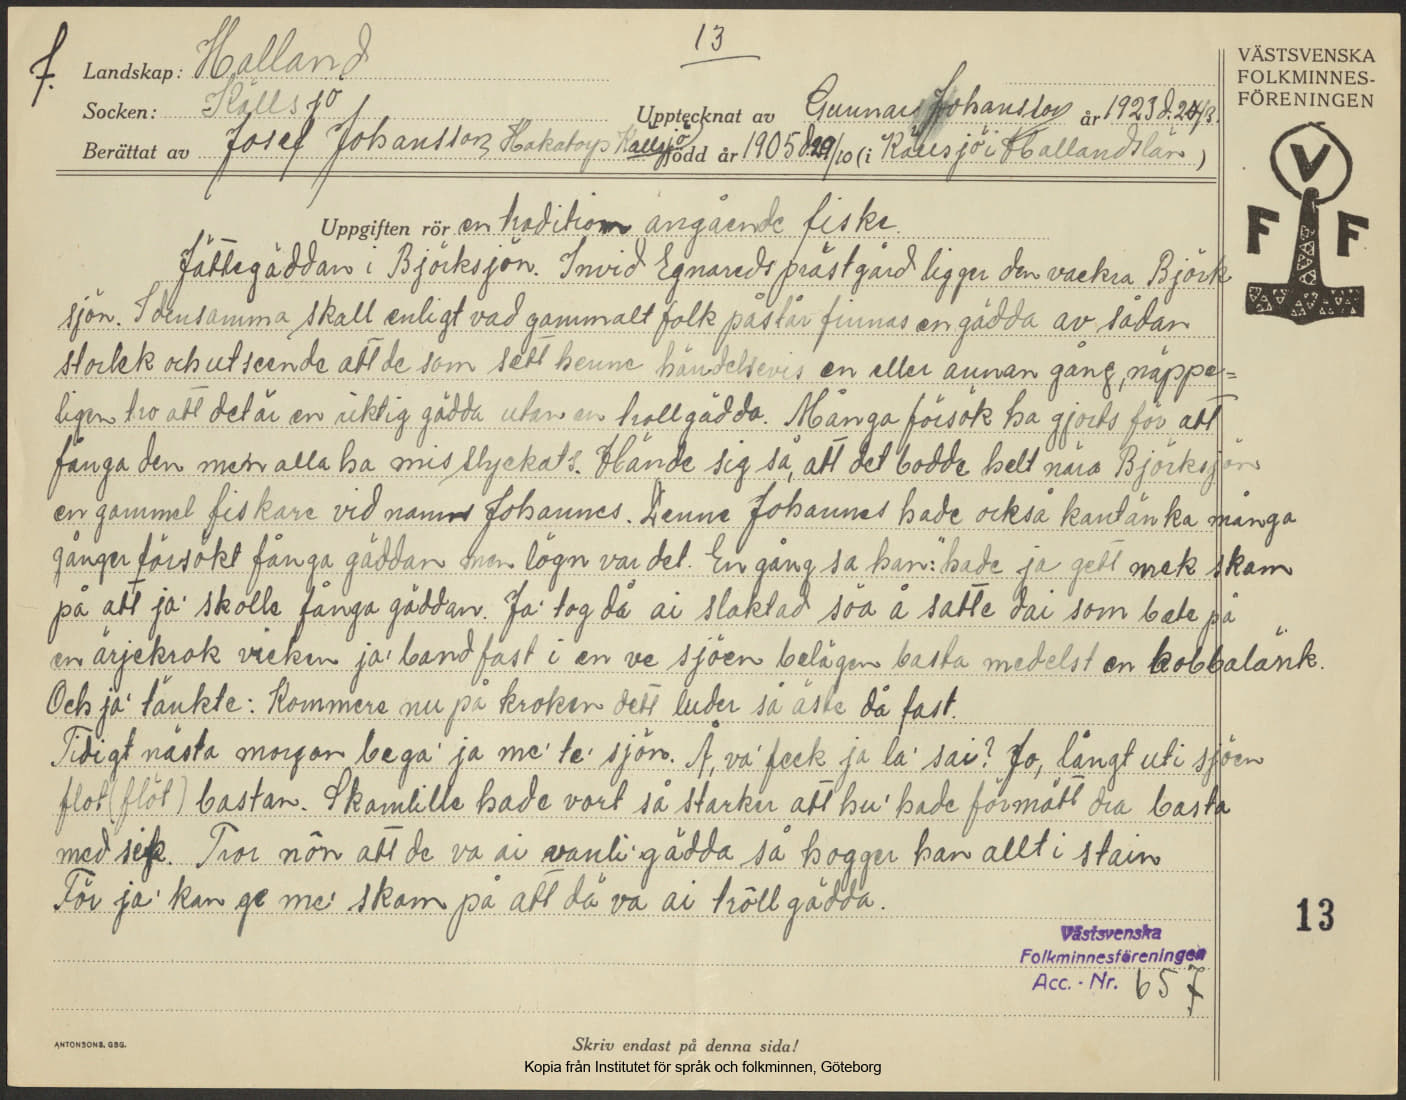 f.
13
Landskap: Halland
Socken: Källsjö
Upptecknat av Gunnar Johansson år 1923 d.
Berättat av Josef Johansson, Källsjö född år 1905 d. 29/10 (i Källsjö i Hallandslän)
VÄSTSVENSKA
FOLKMINNES-
FÖRENINGEN
V
F F
Uppgiften rör en tradition angående fiske.
Jättegäddan i Björksjön. Invid Egnareds prästgård ligger den vackra Björk
sjön. I densamma skall enligt vad gammalt folk påstår finnas en gädda av sådan
storlek och utseende att de som sett henne händelsevis en eller annan gång, näppe=
ligen tro att det är en riktig gädda utan en trollgädda. Många försök ha gjorts för att
fånga den men alla ha misslyckats. Hände sig så, att det bodde helt nära Björksjön
en gammel fiskare vid namn Johannes. Denne Johannes hade också kantänka många
gånger försökt fånga gäddan men lögn var det. En gång sa han: "hade ja gett mek skam
på att ja' skolle fånga gäddan. Ja' tog då ai slaktad söa å satte dai som bete på
en ärjekrok vicken ja' band fast i en ve sjöen belägen basta medelst en kobbalänk.
Och ja' tänkte: Kommere nu på kroken dett luder så äste då fast.
Tidigt nästa morgon bega' ja me' te' sjön. Å, va' feck ja la' sai? Jo, långt uti sjöen
flot (flöt) bastan. Skamlille hade vort så starker att hu' hade förmått dra basta
med sek. Tror nôn att de va ai vanli' gädda så hogger han allt i stain
För ja' kan ge me' skam på att dä va ai trôll gädda.
13
Västsvenska
Folkminnesföreningen
Acc. - Nr. 657
ANTONSONS, GBG.
Skriv endast på denna sida!
Kopia från Institutet för språk och folkminnen, Göteborg